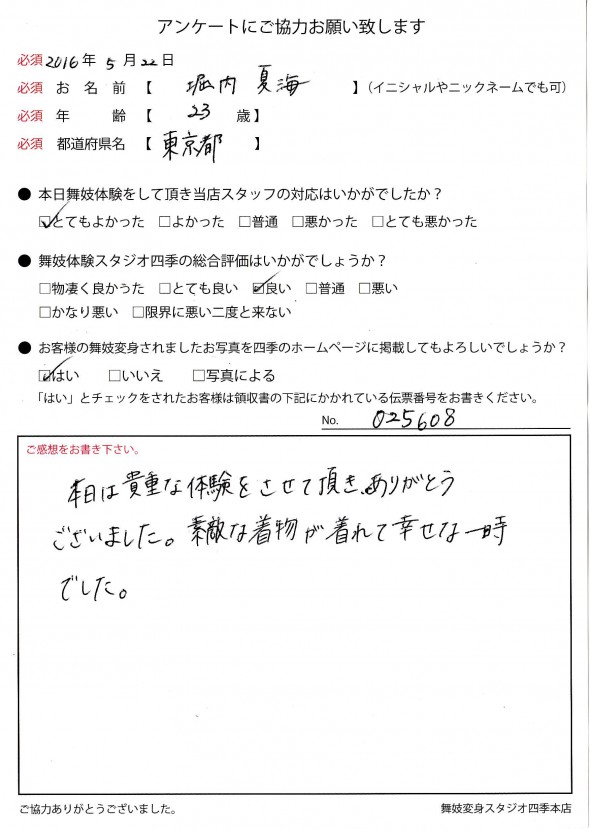 アンケートにご協力お願い致します
必須 2016年 5月22日
必須 お名前【 堀内 夏海 】（イニシャルやニックネームでも可）
必須 年齢【 23 歳】
必須 都道府県名【 東京都 】
● 本日舞妓体験をして頂き当店スタッフの対応はいかがでしたか？
☑とてもよかった □よかった □普通 □悪かった □とても悪かった
● 舞妓体験スタジオ四季の総合評価はいかがでしょうか？
□物凄く良かった □とても良い ☑良い □普通 □悪い
□かなり悪い □限界に悪い二度と来ない
● お客様の舞妓変身されましたお写真を四季のホームページに掲載してもよろしいでしょうか？
☑はい □いいえ □写真による
「はい」とチェックをされたお客様は領収書の下記にかかれている伝票番号をお書きください。
No. 025608
ご感想をお書き下さい。
本日は貴重な体験をさせて頂き、ありがとう
ございました。素敵な着物が着れて幸せな一時
でした。
ご協力ありがとうございました。
舞妓変身スタジオ四季本店